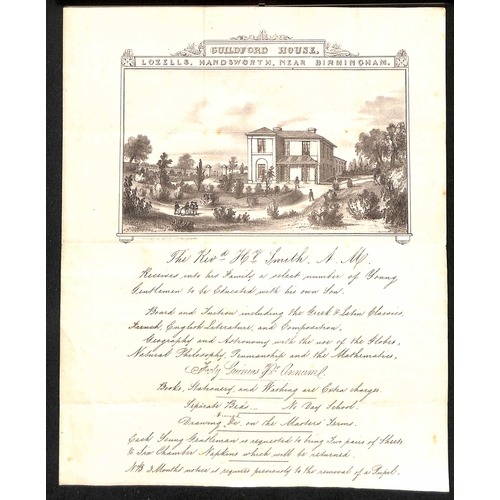 GUILDFORD HOUSE,
LOZELLS, HANDSWORTH, NEAR BIRMINGHAM.
The Revd. Hy. Smith, A. M.
Receives into his Family a select number of Young
Gentlemen to be Educated with his own Son.
Board and Tuition including the Greek & Latin Classics,
French, English Literature, and Composition,
Geography and Astronomy with the use of the Globes,
Natural Philosophy, Penmanship and the Mathematics,
Forty Guineas Pr. Annum.
Books, Stationery, and Washing are Extra charges.
Seperate Beds... No Day School.
Drawing, &c. on the Masters Terms.
Each Young Gentleman is requested to bring Two pairs of Sheets
& Six Chamber Napkins which will be returned.
NB 3 Months notice is requisite previously to the removal of a Pupil.